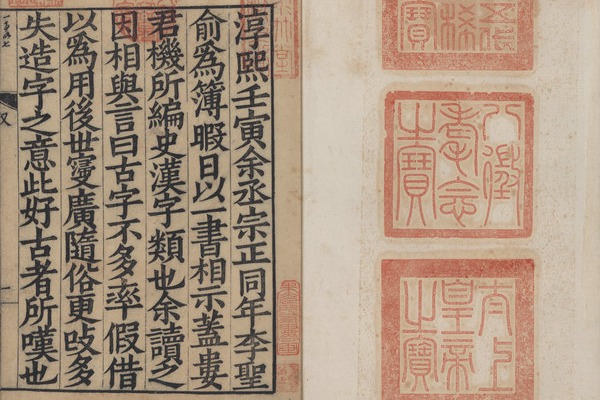 八徵
耄念
之寶
太上
皇帝
之寶
淳熙壬寅余丞宗正同年李聖
俞為簿暇日以一書相示蓋婁
君機所編史漢字類也余讀之
因相與言曰古字不多率假借
以為用後世寖廣隨俗更改多
失造字之意此好古者所嘆也